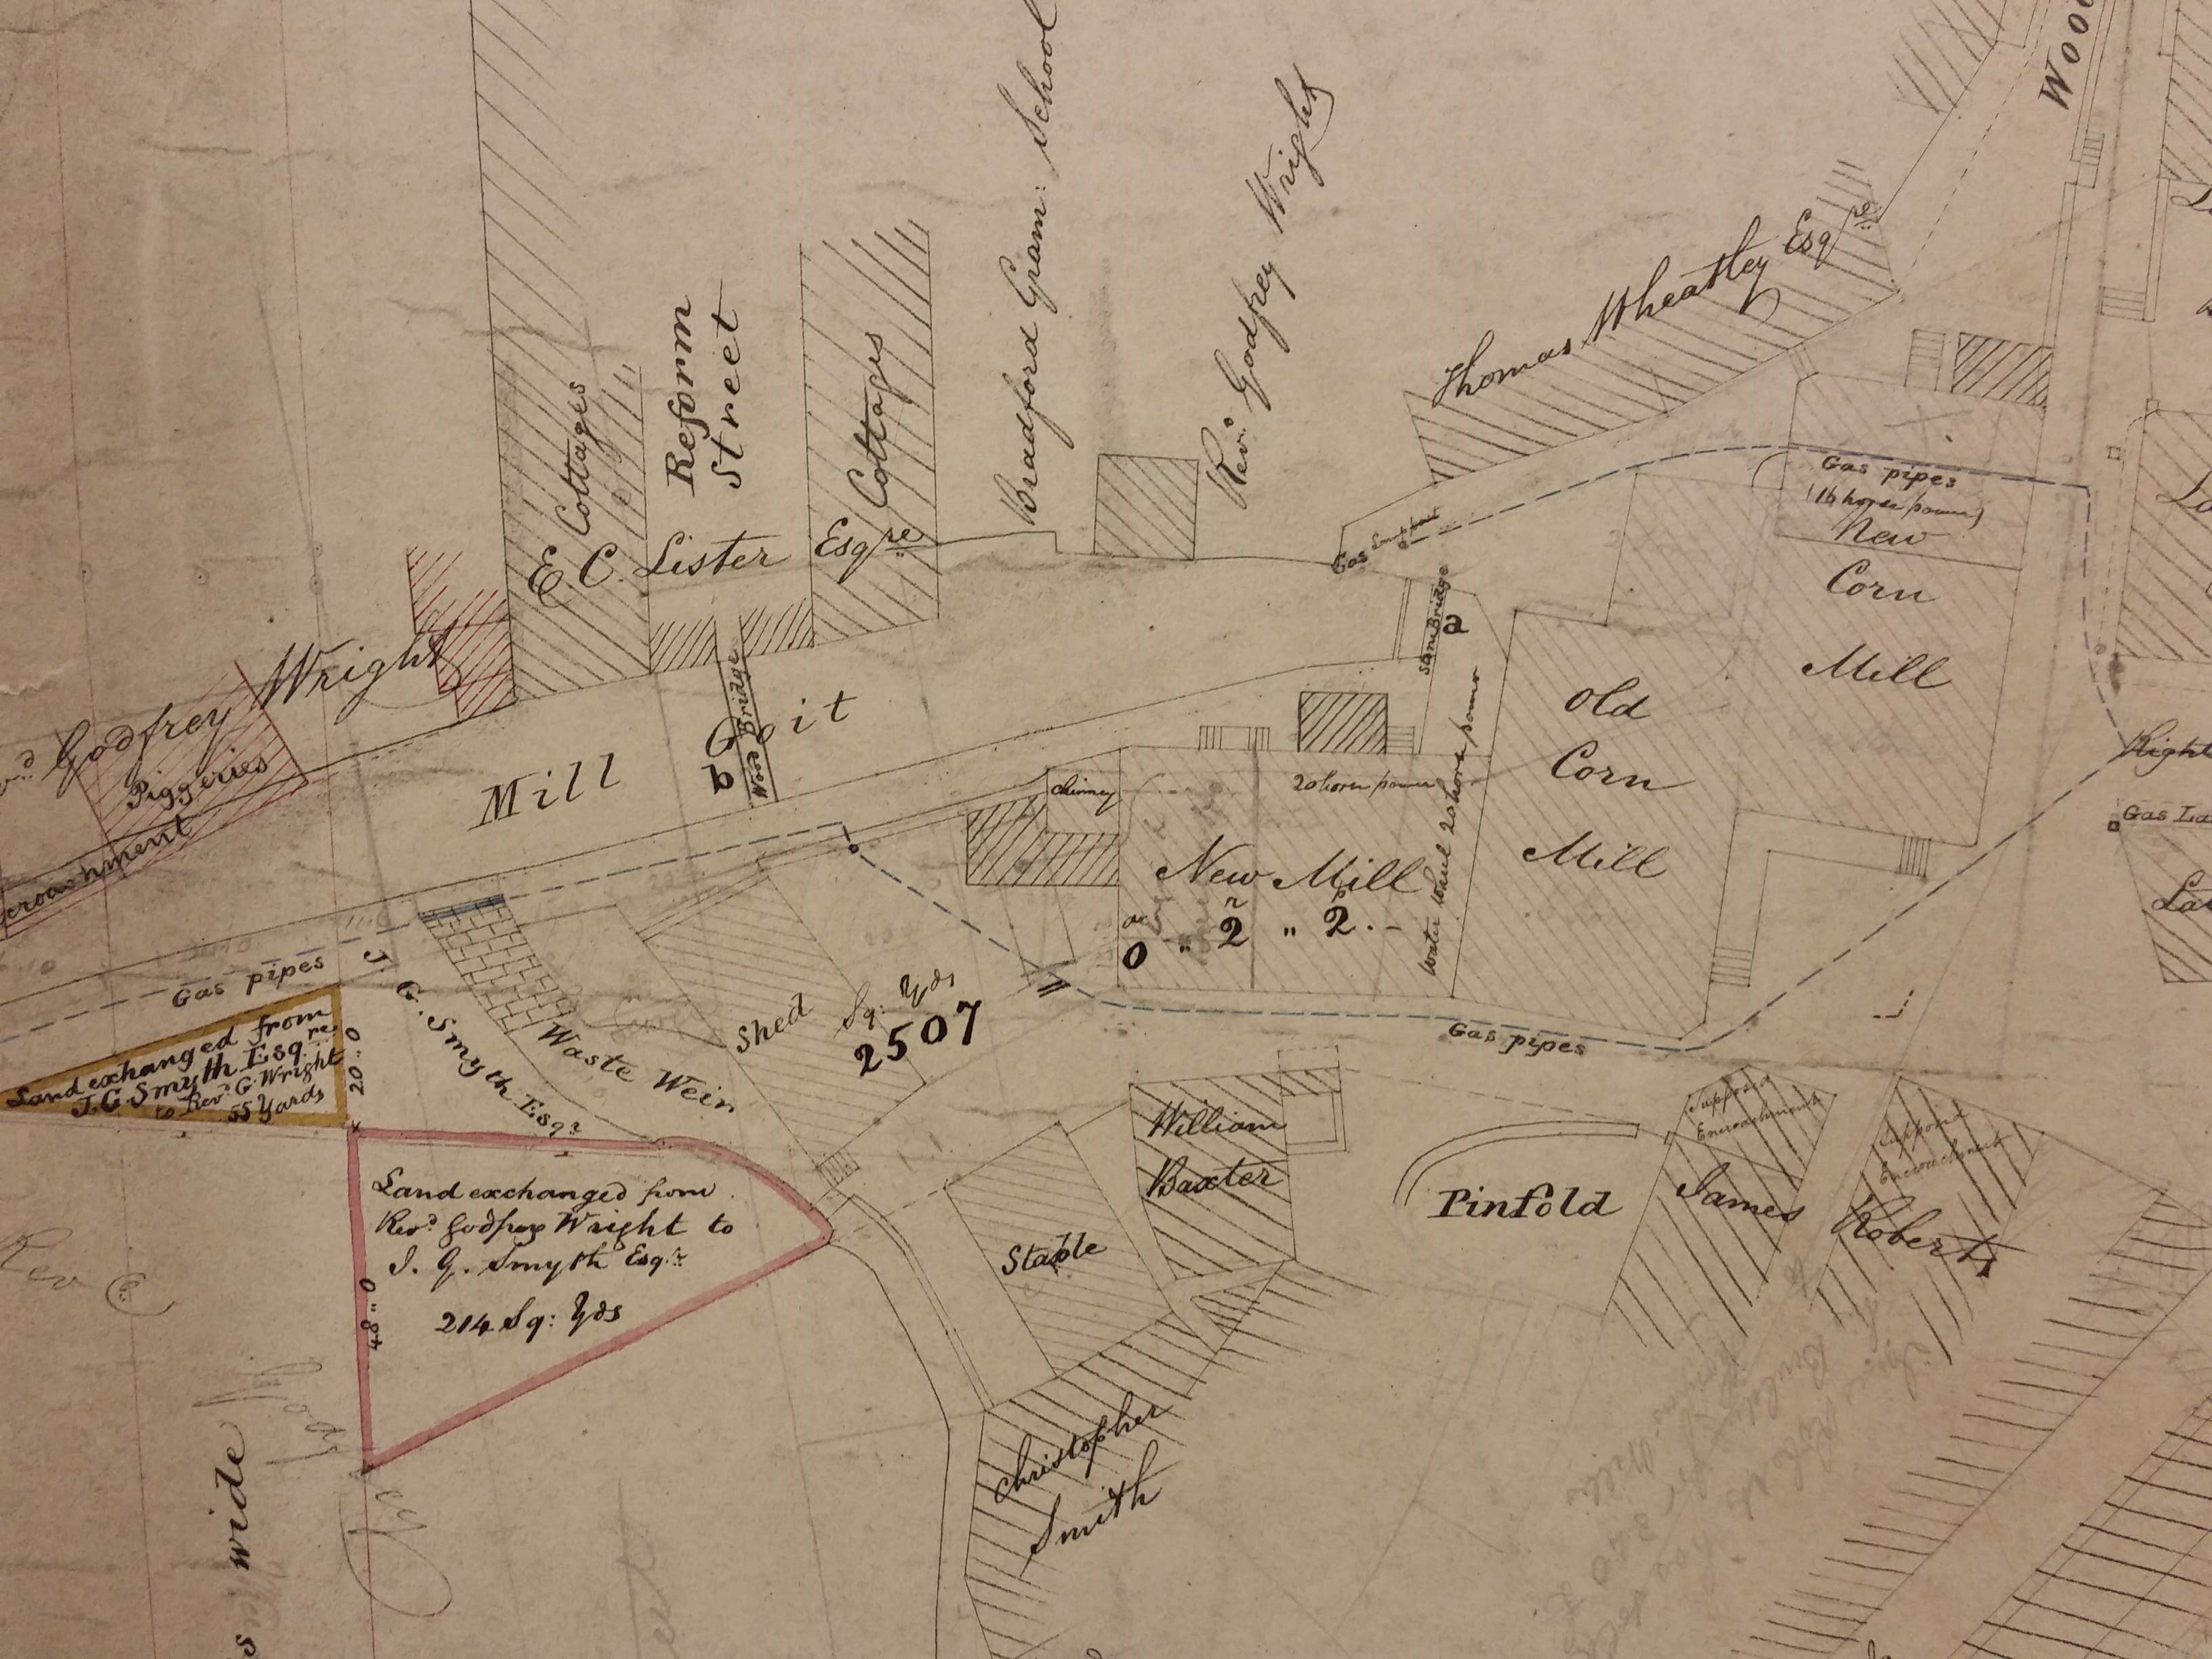 Bradford Gram: School
Rev.d Godfrey Wright
Thomas Wheatley Esq.re
Woo
Reform
Street
Cottages
Cottages
E C. Lister Esq.re
Gas pipes
(16 horse power)
New
Corn
Mill
Gas
Stone Bridge
a
Godfrey Wright
Piggeries
croachment
Mill Goit
Wood Bridge
b
Old
Corn
Mill
water wheel 20 horse power
20 horse power
Chimney
New Mill
0 " 2 " 2 . -
Right
Gas La
Gas pipes
J. G. Smyth Esq.r
Waste Weir
Shed
Sq: Yds
2507
Gas pipes
Land exchanged from
J. G. Smyth Esq.re
to Rev.d G. Wright
55 Yards
20 " 0
Land exchanged from
Rev.d Godfrey Wright to
J. G. Smyth Esq.r
214 Sq: Yds
48 " 0
William
Baxter
Stable
Pinfold
Encroachment
James
Encroachment
Robert
Christopher
Smith
Rev
wide